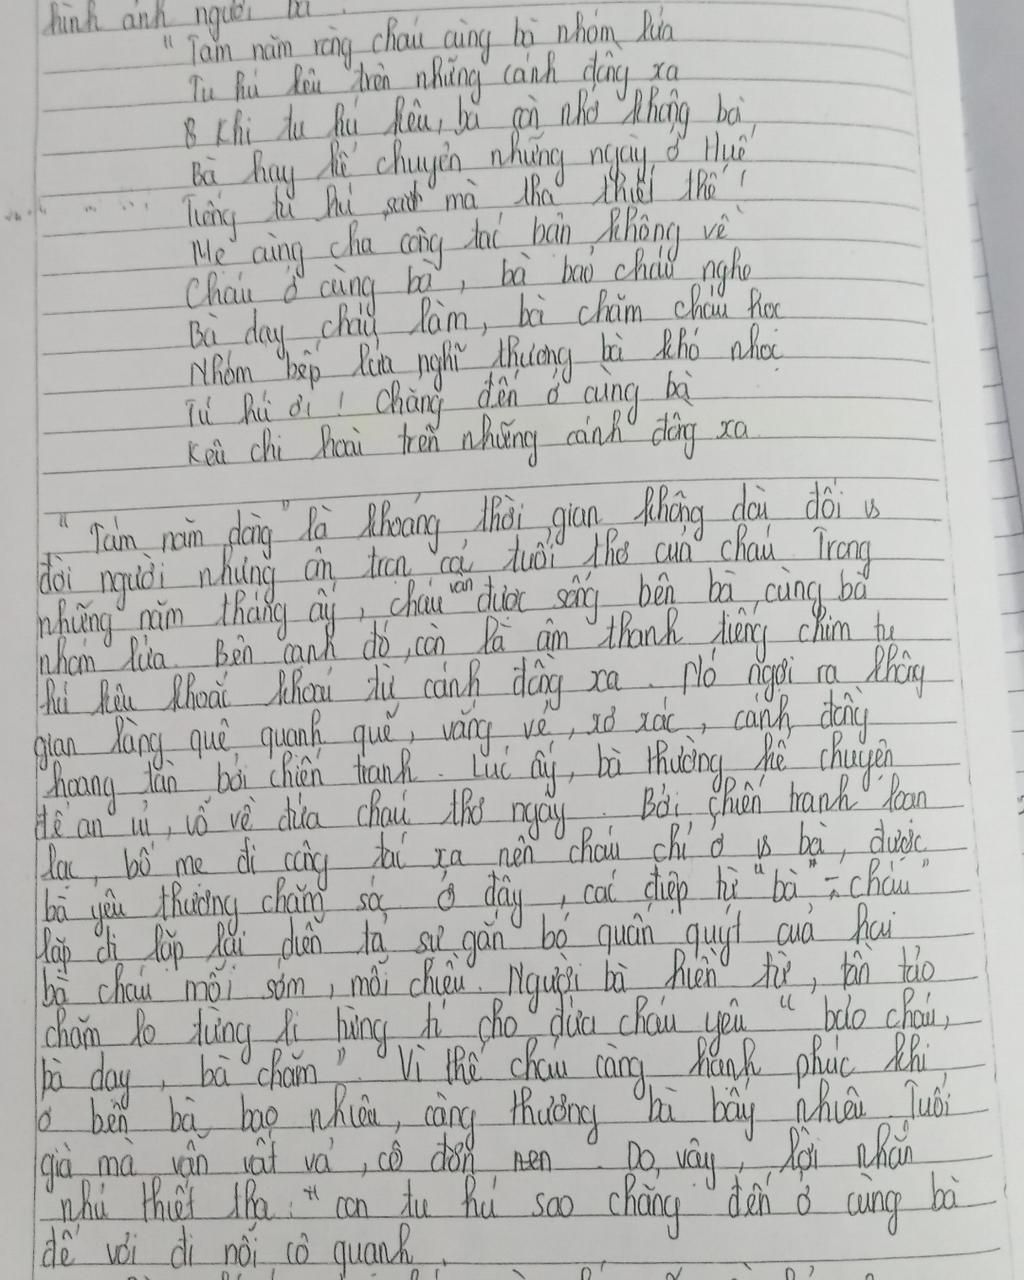 hình ảnh người bà.
"Tám năm ròng cháu cùng bà nhóm lửa
Tu hú kêu trên những cánh đồng xa
Khi tu hú kêu, bà còn nhớ không bà
Bà hay kể chuyện những ngày ở Huế
Tiếng tú hú sao mà tha thiết thế!
Mẹ cùng cha công tác bận không về
Cháu ở cùng bà, bà bảo cháu nghe
Bà dạy cháu làm, bà chăm cháu học
Nhóm bếp lửa nghĩ thương bà khó nhọc
Tú hú ơi! Chẳng đến ở cùng bà
Kêu chi hoài trên những cánh đồng xa
"Tám năm dòng" là khoảng thời gian không dài đối vs
đời người nhưng ôn tron cả tuổi thơ của cháu. Trong
những năm tháng ấy, cháu vẫn được sống bên bà, cùng bà
nhóm lửa. Bên cạnh đó, còn là âm thanh tiếng chim tu
hú kêu khoắc khoải từ cánh đồng xa. Nó ngợi ra không
gian làng quê quanh quẽ, vắng vẻ, xơ xác, cánh đồng
hoang tàn bởi chiến tranh. Lúc ấy, bà thường kể chuyện
để an ủi, vỗ về đứa cháu thơ ngây. Bởi chiến tranh loạn
lạc, bố mẹ đi công tác xa nên cháu chỉ ở vs bà, được
bà yêu thương chăm sóc. Ở đây, các điệp từ "bà" - "cháu"
lặp đi lặp lại diễn tả sự gắn bó quấn quýt của hai
bà cháu mỗi sớm, mỗi chiều. Người bà hiền từ, tần tảo
chăm lo từng li từng tí cho đứa cháu yêu "bảo cháu,
bà dạy, bà chăm". Vì thế cháu càng hạnh phúc khi
ở bên bà bao nhiêu, càng thương bà bấy nhiêu. Tuổi
già mà vẫn vất vả, cô đơn. Do vậy, lời nhắn
nhủ thiết tha: "con tu hú sao chẳng đến ở cùng bà
để vơi đi nỗi cô quạnh.